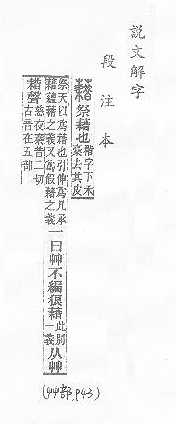 說文解字
段注本
藉祭藉也稭字下禾
稾去其皮
祭天以爲藉也引伸爲凡承
藉蘊藉之義又爲假藉之義
一曰艸不編狼藉此別
一義
从艸
耤聲慈夜秦昔二切
古音在五部
(艸部,P43)